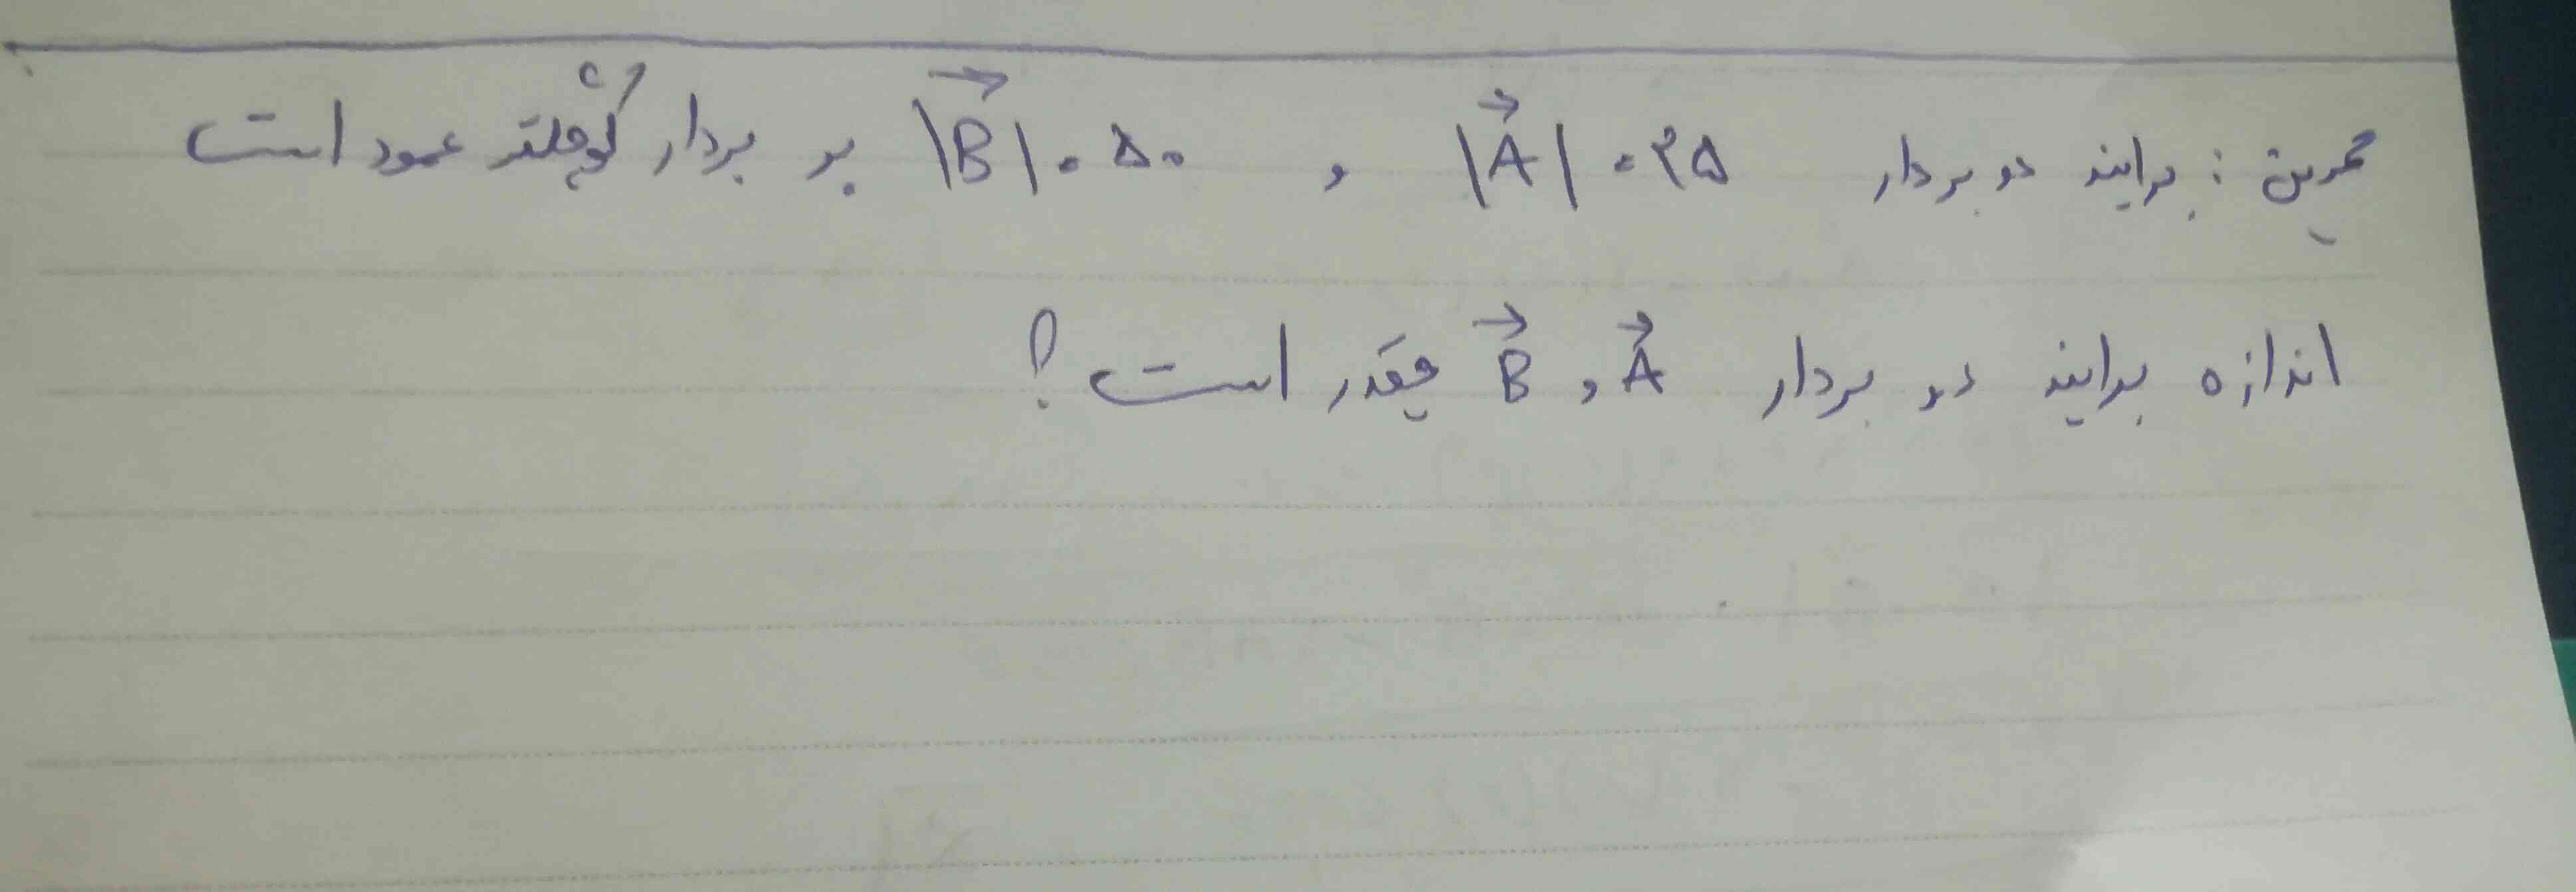 تمرین : برایند دو بردار |A| = ۲۵ و |B| = ۵۰ بر بردار کوچکتر عمود است
اندازه برایند دو بردار A و B چقدر است ؟